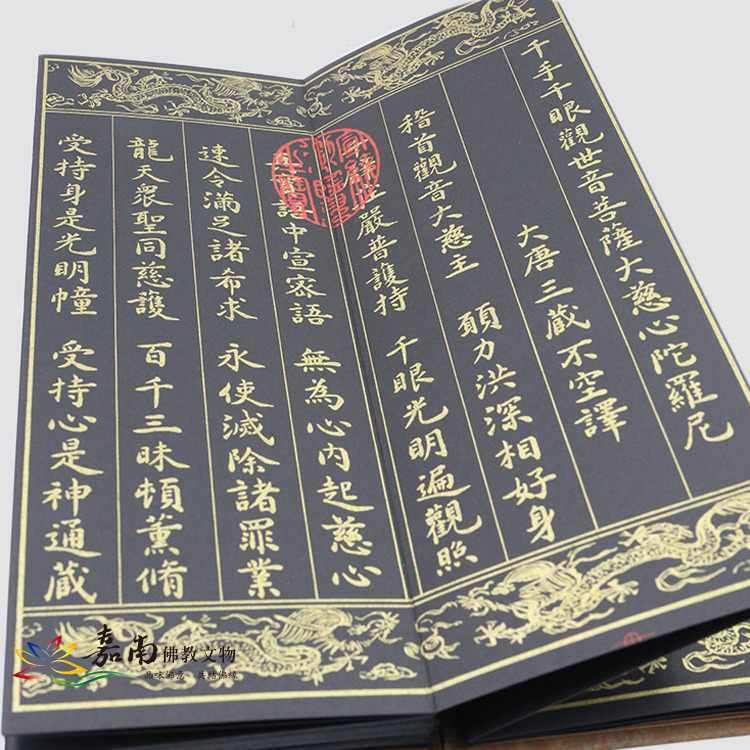 千手千眼觀世音菩薩大慈心陀羅尼
大唐三藏不空譯
稽首觀音大慈主 願力洪深相好身
嚴普護持 千眼光明遍觀照
語中宣密語 無為心內起慈心
速令滿足諸希求 永使滅除諸罪業
龍天衆聖同慈護 百千三昧頓薰脩
受持身是光明幢 受持心是神通藏
嘉南佛教文物